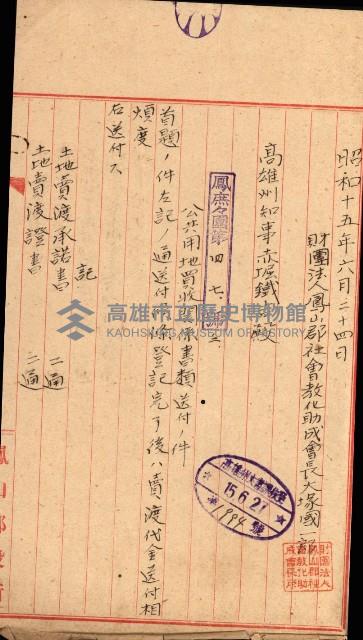 昭和十五年六月二十四日
財團法人鳳山郡社會教化助成會長大塚國
高雄州知事赤堀鐵吉殿
鳳庶々團第四七號ノ三
公共用地買收關係書類送付ノ件
首題ノ件左記ノ通送付候條登記完了後ハ賣渡代金送付相
煩度
右送付ス
記
土地賣渡承諾書 二通
土地賣渡證書 二通
15.6.27
1994號
財團法人鳳山郡社會教化助成會
高雄市立歷史博物館
KAOHSIUNG MUSEUM OF HISTORY